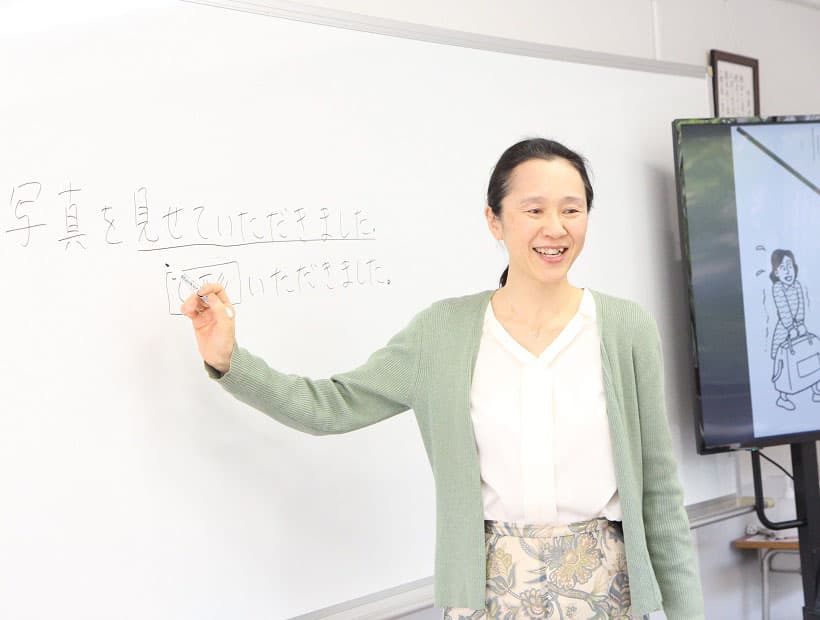 写真を見せていただきました。
いただきました。